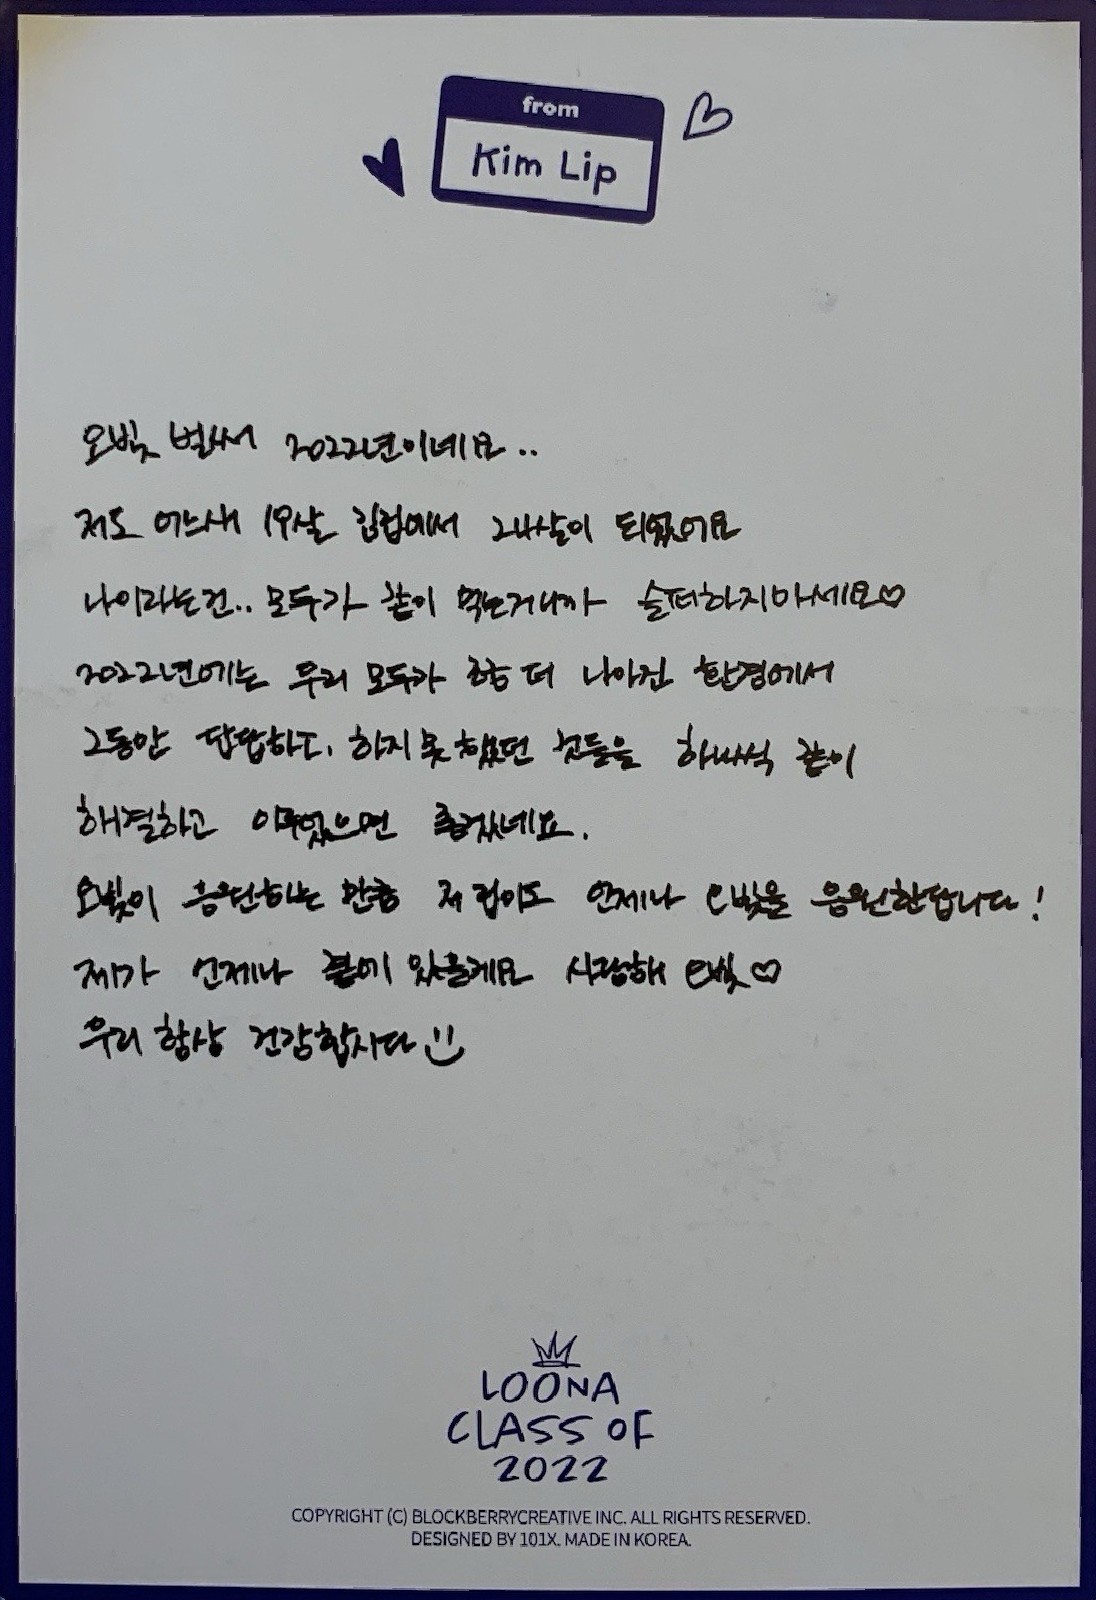 from
Kim Lip
오빛 벌써 2022년이네요..
저도 어느새 19살 김립에서 24살이 되었어요
나이라는건.. 모두가 같이 먹는거니까 슬퍼하지마세요♡
2022년에는 우리 모두가 한층 더 나아진 환경에서
그동안 답답하고, 하지 못했던 것들을 하나씩 같이
해결하고 이루었으면 좋겠네요.
오빛이 응원하는 만큼 저 립이도 언제나 오빛을 응원한답니다!
제가 언제나 곁에 있을게요 사랑해 오빛♡
우리 항상 건강합시다
LOONA
CLASS OF
2022
COPYRIGHT (C) BLOCKBERRYCREATIVE INC. ALL RIGHTS RESERVED.
DESIGNED BY 101X. MADE IN KOREA.